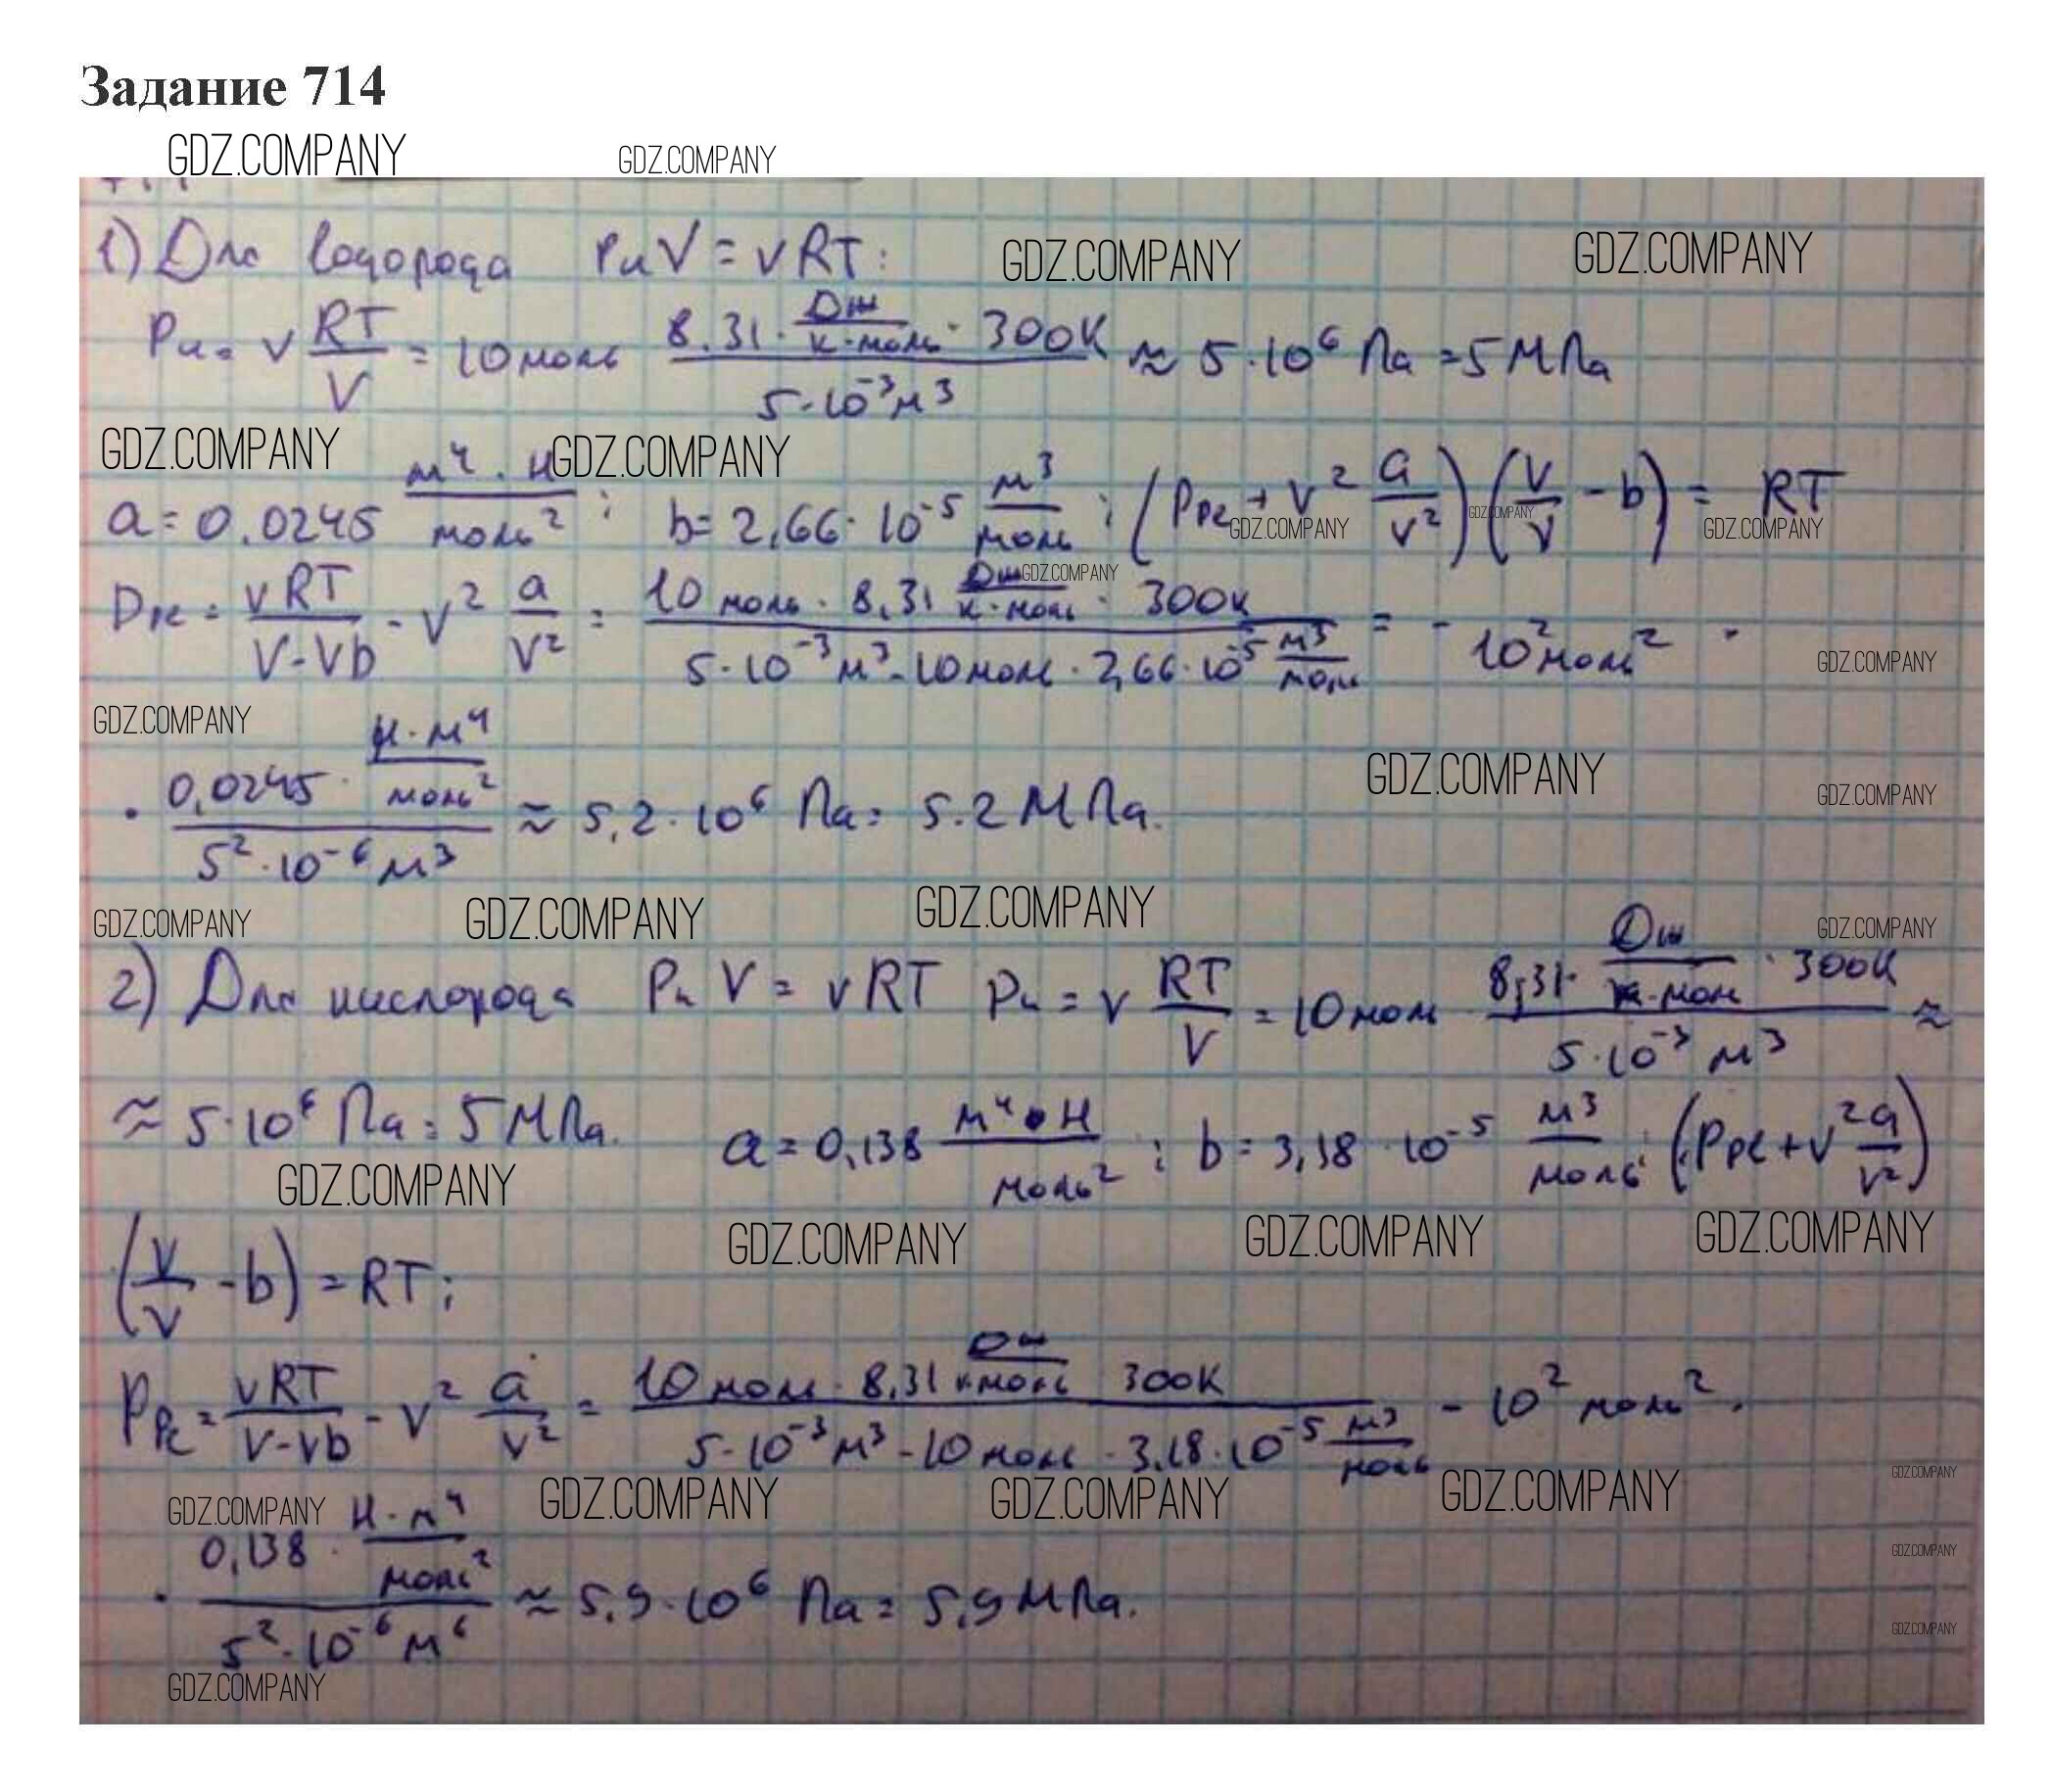 Задание 714
GDZ.COMPANY GDZ.COMPANY
1) Для водорода PиV = νRT: GDZ.COMPANY GDZ.COMPANY
Pи = ν RT/V = 10 моль 8.31 · Дж/К·моль · 300К / 5·10⁻³м³ ≈ 5·10⁶ Па = 5 МПа
GDZ.COMPANY GDZ.COMPANY
a = 0.0245 м⁴·Н/моль² ; b = 2,66·10⁻⁵ м³/моль ; (Pре + ν² a/V²)(V/ν - b) = RT
GDZ.COMPANY GDZ.COMPANY GDZ.COMPANY
GDZ.COMPANY
Pре = νRT/V-νb - ν² a/V² = 10 моль · 8,31 Дж/К·моль · 300К / 5·10⁻³ м³ - 10 моль · 2,66·10⁻⁵ м³/моль = - 10² моль² ·
GDZ.COMPANY
GDZ.COMPANY
· 0,0245 · Н·м⁴/моль² / 5²·10⁻⁶ м³ ≈ 5,2·10⁶ Па = 5.2 МПа.
GDZ.COMPANY GDZ.COMPANY
GDZ.COMPANY GDZ.COMPANY GDZ.COMPANY GDZ.COMPANY
2) Для кислорода Pи V = νRT Pи = ν RT/V = 10 моль 8,31· Дж/К·моль · 300К / 5·10⁻³ м³ ≈
≈ 5·10⁶ Па = 5 МПа. a = 0,138 м⁴·Н/моль² ; b = 3,18·10⁻⁵ м³/моль ; (Pре + ν² a/V²)
GDZ.COMPANY
GDZ.COMPANY GDZ.COMPANY GDZ.COMPANY
(V/ν - b) = RT;
Pре = νRT/V-νb - ν² a/V² = 10 моль · 8,31 Дж/К·моль 300К / 5·10⁻³м³ - 10 моль · 3,18·10⁻⁵ м³/моль - 10² моль² ·
GDZ.COMPANY GDZ.COMPANY GDZ.COMPANY GDZ.COMPANY GDZ.COMPANY
· 0,138 · Н·м⁴/моль² / 5²·10⁻⁶ м⁶ ≈ 5,9·10⁶ Па = 5,9 МПа.
GDZ.COMPANY
GDZ.COMPANY
GDZ.COMPANY